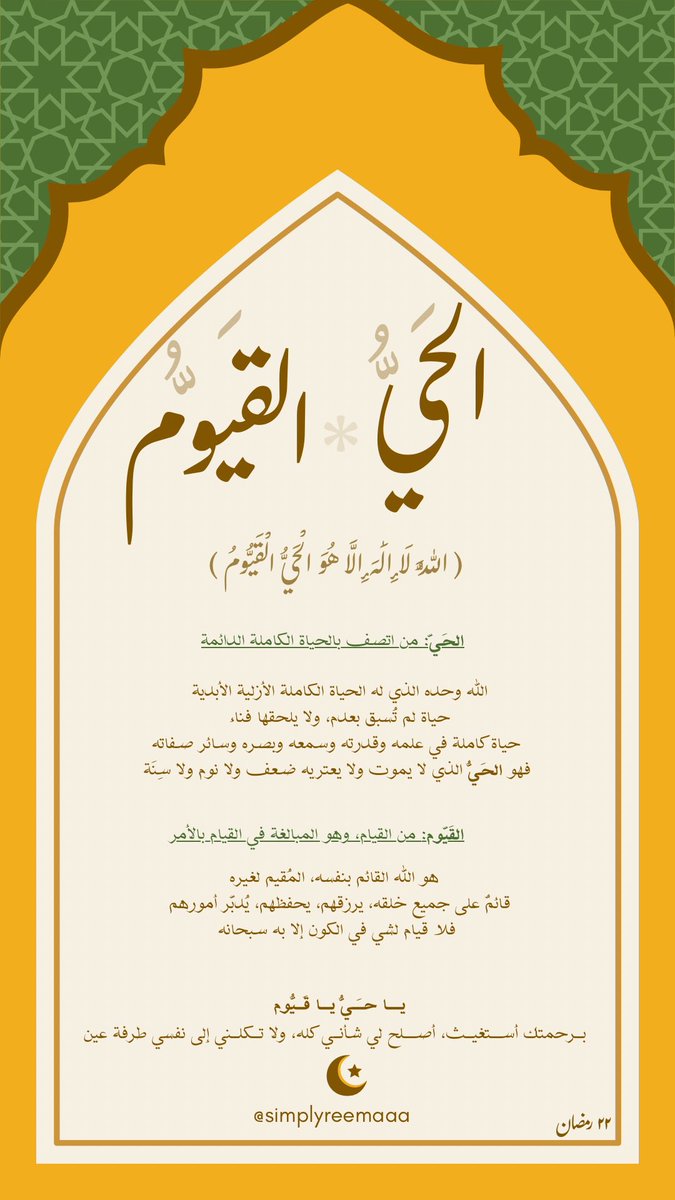 الحَيُّ * القيَوُّم
( اللَّهُ لَا إِلَٰهَ إِلَّا هُوَ الْحَيُّ الْقَيُّومُ )
الحَيّ: من اتصف بالحياة الكاملة الدائمة
الله وحده الذي له الحياة الكاملة الأزلية الأبدية
حياة لم تُسبق بعدم، ولا يلحقها فناء
حياة كاملة في علمه وقدرته وسمعه وبصره وسائر صفاته
فهو الحَيُّ الذي لا يموت ولا يعتريه ضعف ولا نوم ولا سِنَة
القَيّوم: من القيام، وهو المبالغة في القيام بالأمر
هو الله القائم بنفسه، المُقيم لغيره
قائمٌ على جميع خلقه، يرزقهم، يحفظهم، يُدبّر أمورهم
فلا قيام لشي في الكون إلا به سبحانه
يــا حــَـيُّ يــا قَــيُّوم
بـرحمتك أســـتغيـث، أصـــلح لي شـأنـي كله، ولا تـكلـني إلى نفسي طرفة عين
@simplyreemaaa
٢٢ رمضان